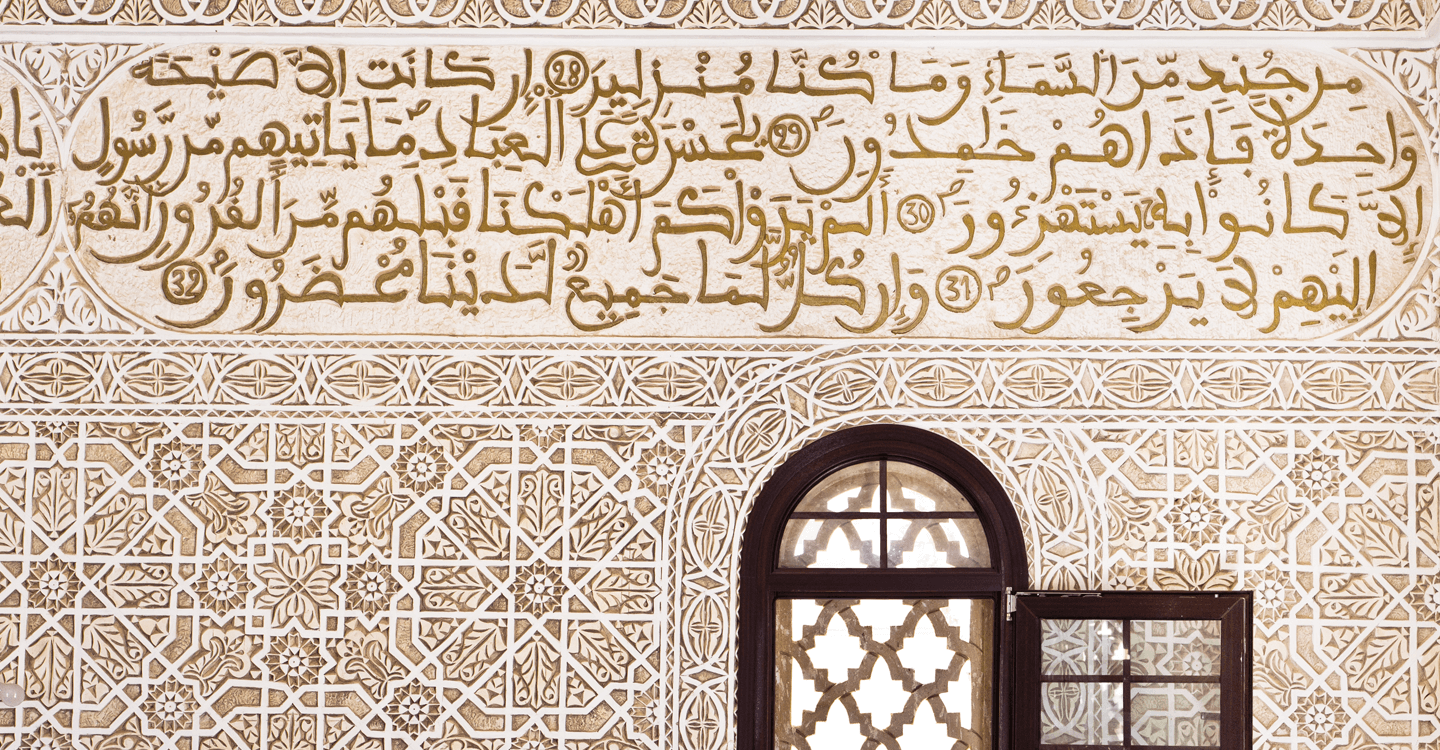 مِن جُندٍ مِّنَ السَّمَاءِ وَمَا كُنَّا مُنزِلِينَ 28 إِن كَانَتِ الَّا صَيْحَةً
وَاحِدَةً فَإِذَا هُمْ خَٰمِدُونَ 29 يَٰحَسْرَةً عَلَى الْعِبَادِ مَا يَاتِيهِم مِّن رَّسُولٍ
إِلَّا كَانُوا بِهِ يَسْتَهْزِءُونَ 30 أَلَمْ يَرَوْا كَمَ اَهْلَكْنَا قَبْلَهُم مِّنَ الْقُرُونِ أَنَّهُمُ
إِلَيْهِمْ لَا يَرْجِعُونَ 31 وَإِن كُلٌّ لَّمَا جَمِيعٌ لَّدَيْنَا مُحْضَرُونَ 32